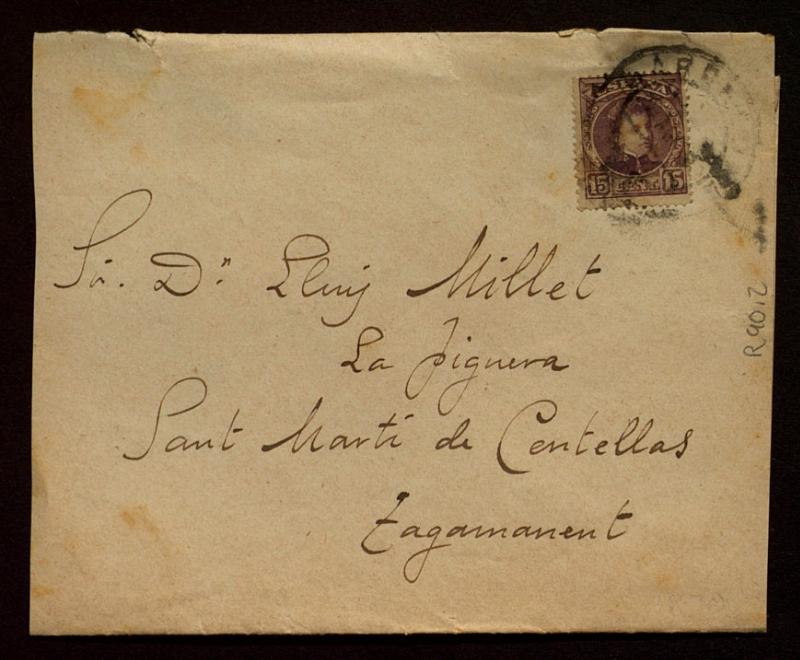 ESPAÑA
15 15
Sr. Dn. Lluij Millet
La Figuera
Sant Martí de Centellas
Tagamanent
R.90,2